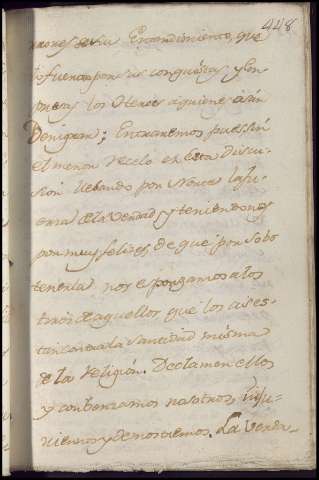 448
razones de su Entendimiento, que
por sus conquistas y Em-
presas los Heroes a quienes asi
Denigran; Entraremos pues sin
el menor recelo en Esta Discu-
sion llebando por Norte la
de la Verdad, y teniendonos
por muy felices, de que por solo
tenerla nos espongamos a los
tiros de aquellos que los ases-
tan contra la Santidad misma
de la Religion. Declamen ellos
y combenzamos nosotros,
y demostremos. La Verda-